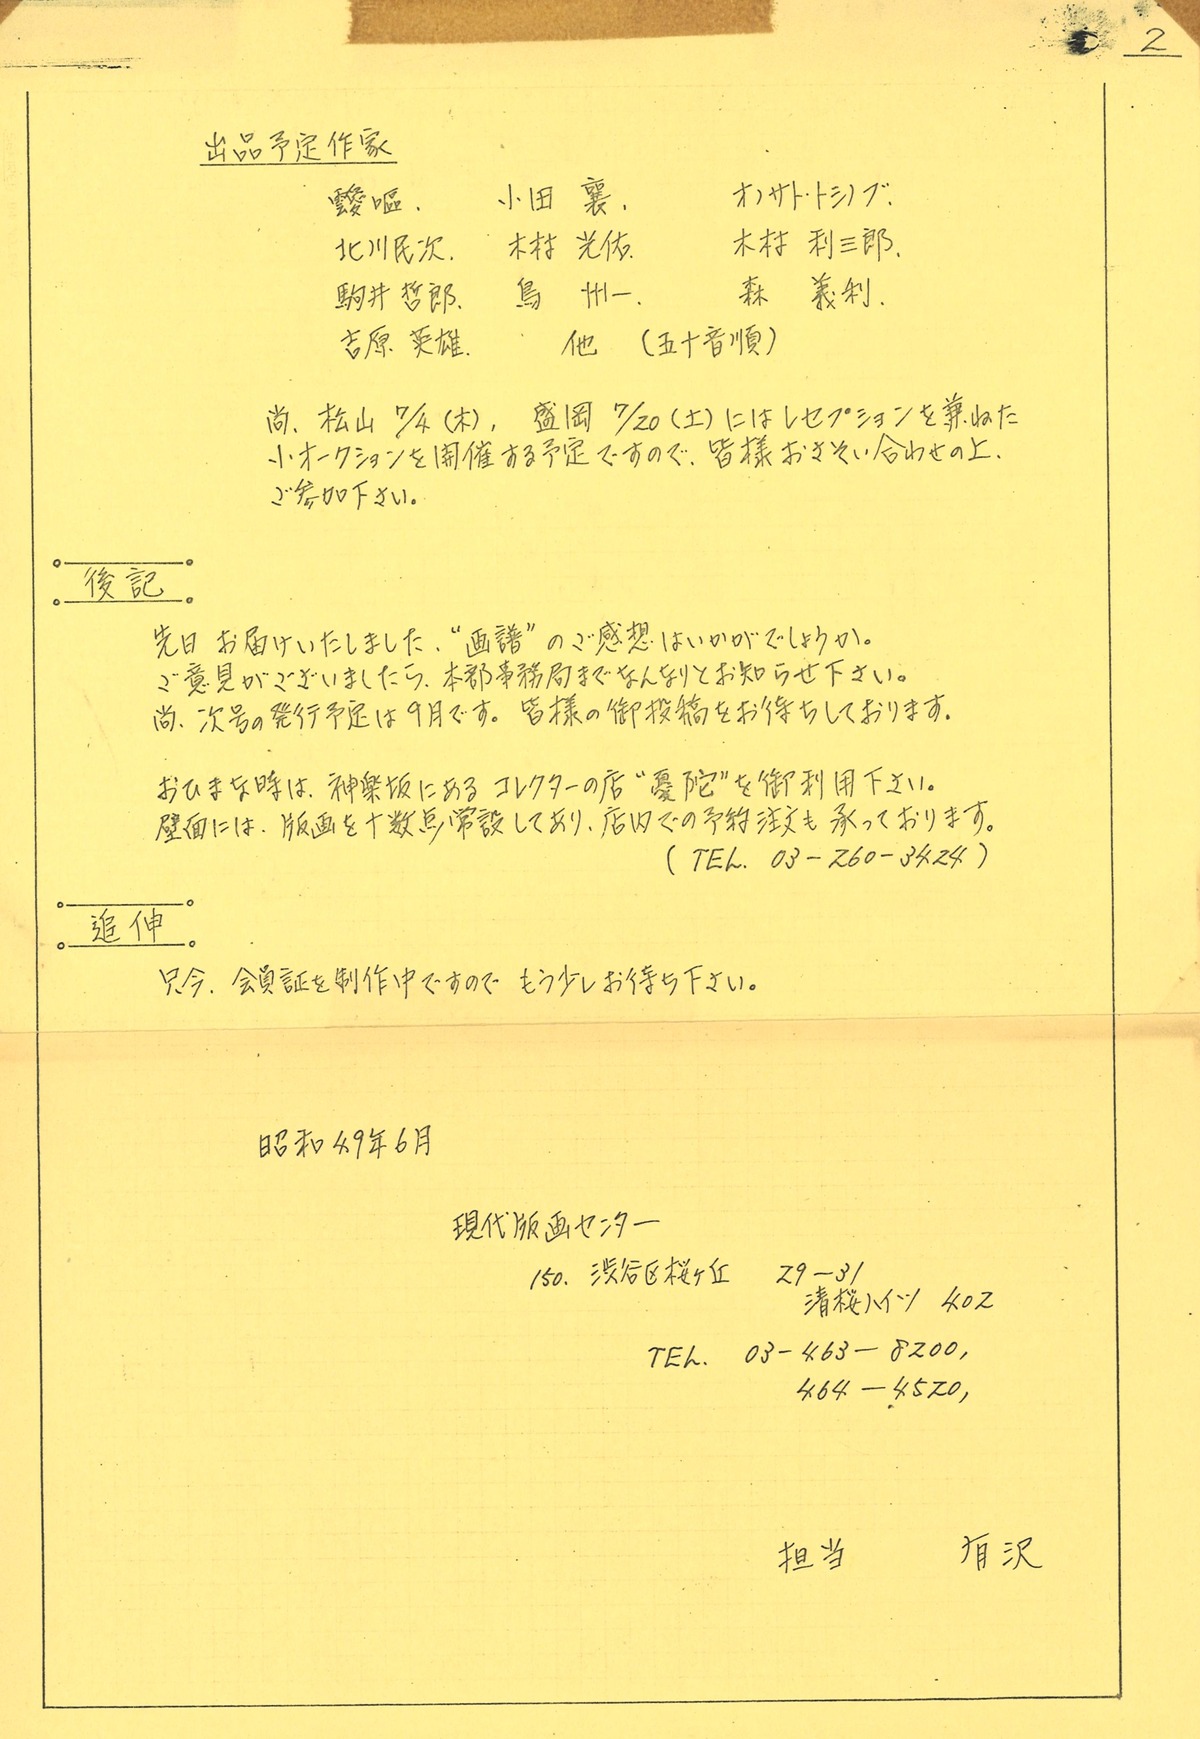 2
出品予定作家
靉嘔. 小田 襄. オノサト・トシノブ.
北川民次. 木村 光佑. 木村 利三郎.
駒井 哲郎. 島 州一. 森 義利.
吉原 英雄. 他 (五十音順)
尚、松山 7/4(木), 盛岡 7/20(土)にはレセプションを兼ねた
小オークションを開催する予定ですので、皆様おさそい合わせの上、
ご参加下さい。
後記
先日 お届けいたしました、“画譜”のご感想はいかがでしょうか。
ご意見がございましたら、本部事務局までなんなりとお知らせ下さい。
尚、次号の発行予定は9月です。皆様の御投稿をお待ちしております。
おひまな時は、神楽坂にあるコレクターの店“憂陀”を御利用下さい。
壁面には、版画を十数点常設してあり、店内での予約注文も承っております。
(TEL. 03-260-3424)
追伸
只今、会員証を制作中ですのでもう少しお待ち下さい。
昭和49年6月
現代版画センター
150. 渋谷区桜ヶ丘 29-31
清桜ハイツ 402
TEL. 03-463-8200,
464-4520,
担当 有沢